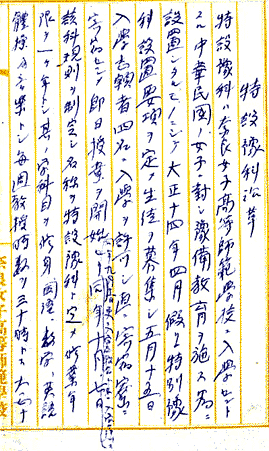 特設豫科沿革
特設豫科ハ奈良女子高等師範學校ニ入學セント
スル中華民國ノ女子ニ對シ豫備敎育ヲ施ス為ニ
設置シタルモノニシテ大正十四年四月假ニ特別豫
科設置要項ヲ定メ生徒ヲ募集シ五月十五日
入學志願者四名ニ入學ヲ許可シ直ニ寄宿寮ニ
寄宿セシメ即日授業ヲ開始
同年十月
豫科規則ヲ制定シ名称ヲ特設豫科ト定メ修業年
限ヲ一ケ年トシ其ノ學科目ヲ修身國語數學英語
體操音樂トシ毎週敎授時數ヲ三十時トス大正十
奈良女子高等師範學校